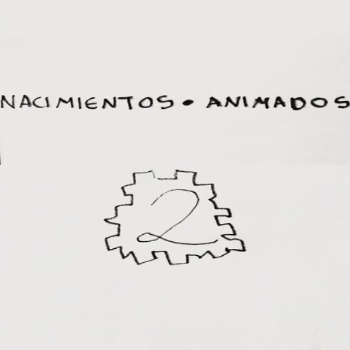 NACIMIENTOS • ANIMADOS
2